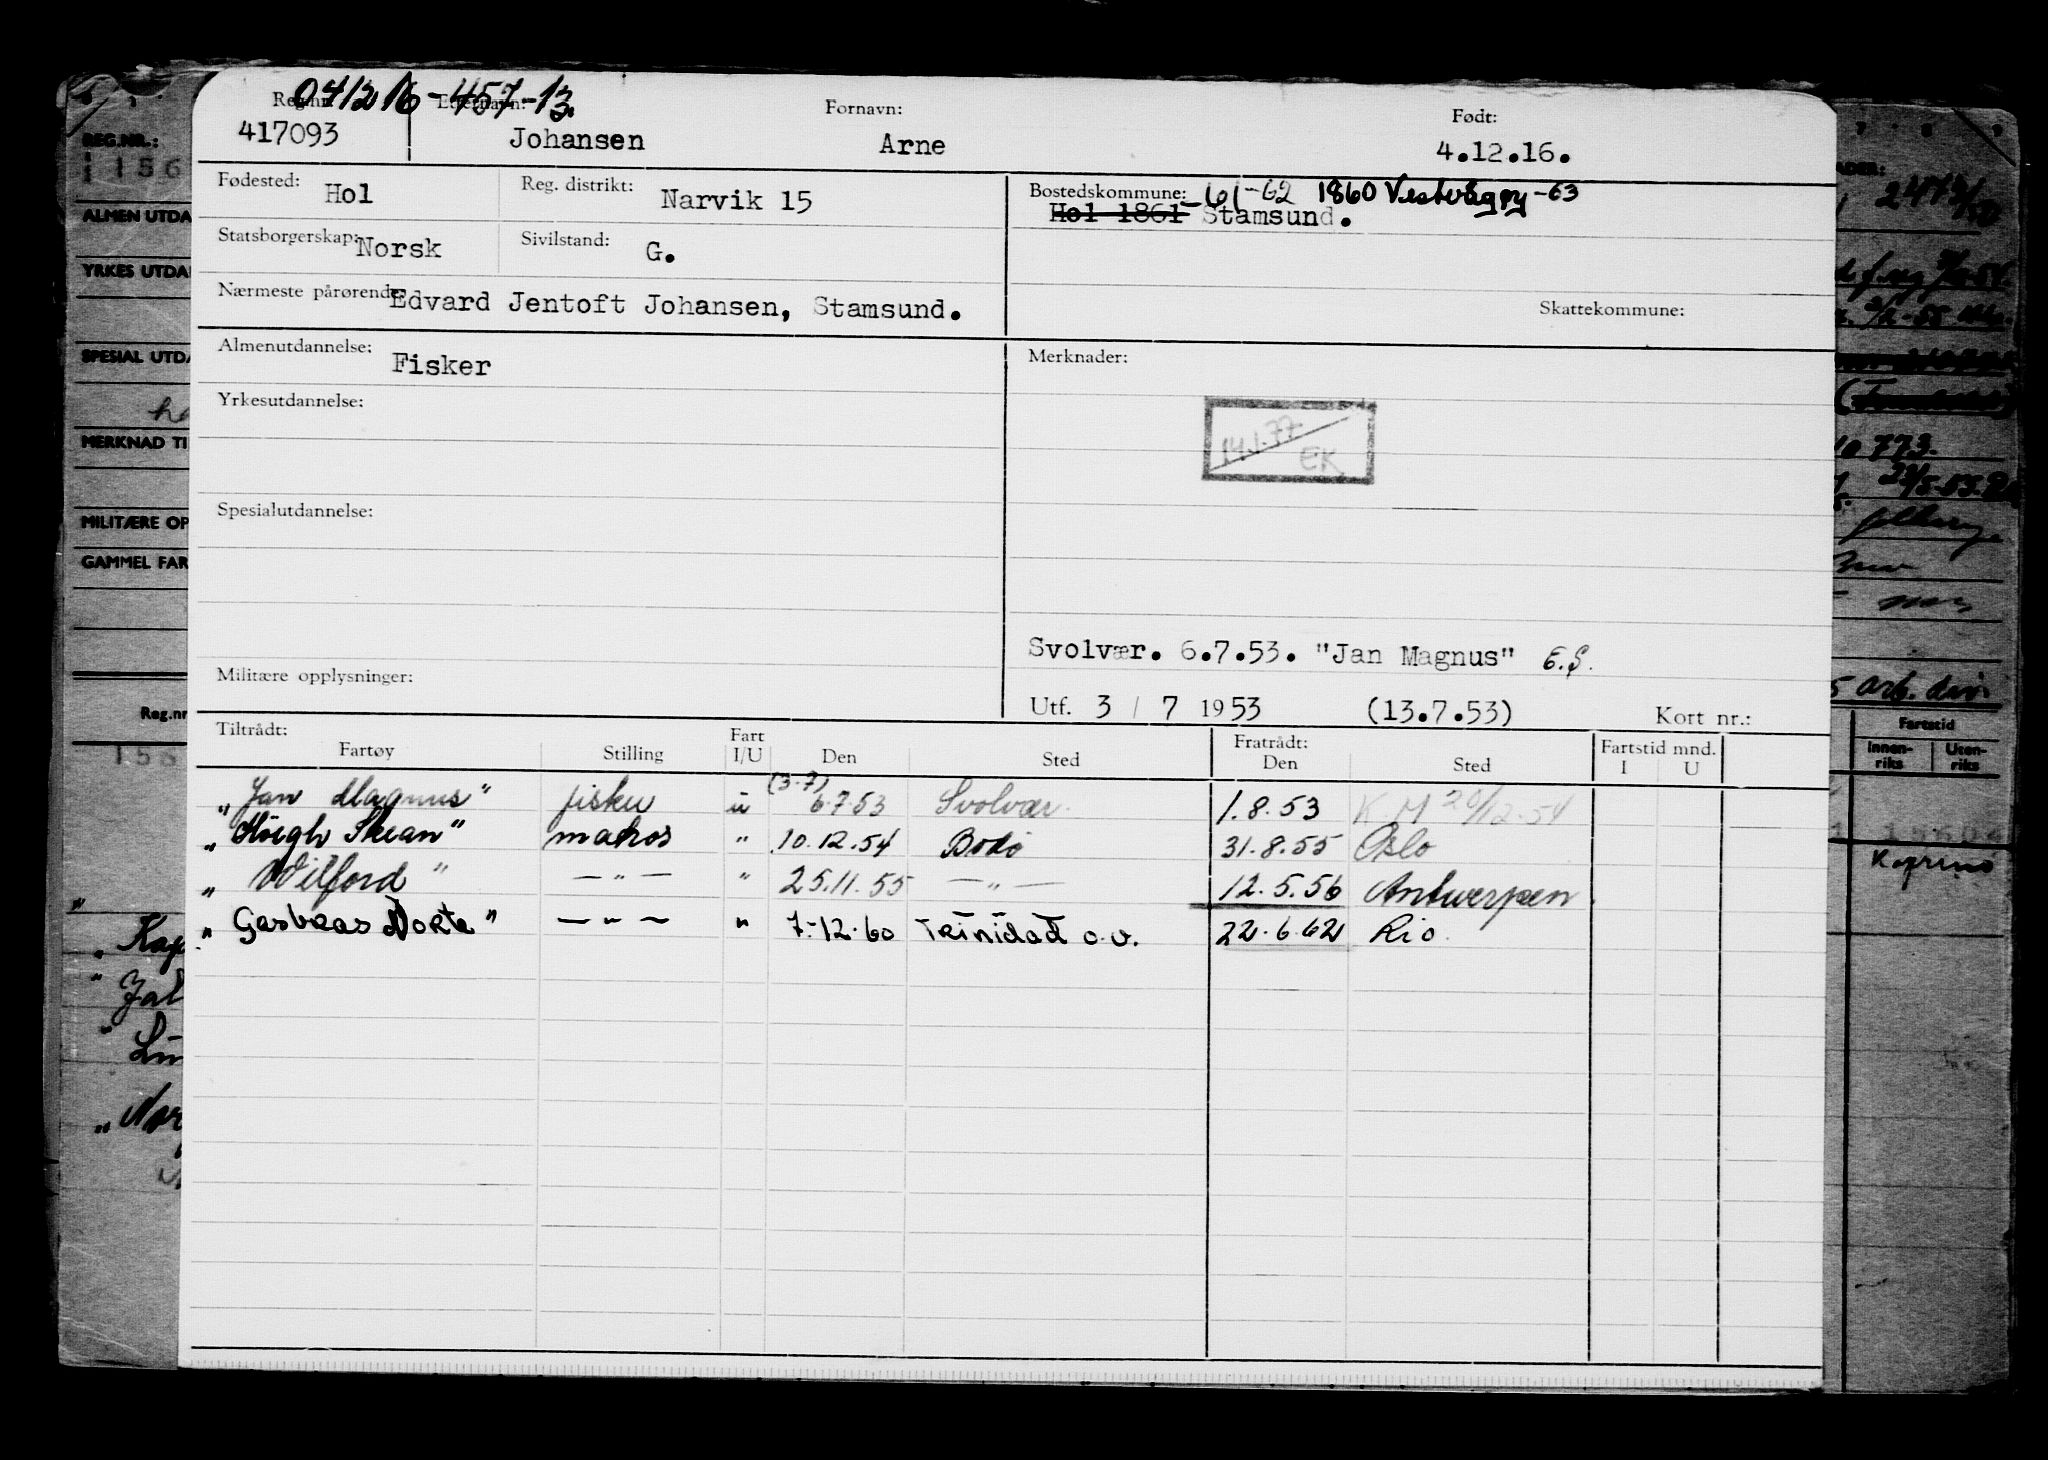 041216-457-13.
Reg.nr. Etternavn: Fornavn: Født:
417093 Johansen Arne 4.12.16.
Fødested: Hol Reg. distrikt: Narvik 15 Bostedskommune: -61-62 1860 Vestvågøy -63
Hol 1861 Stamsund.
Statsborgerskap: Norsk Sivilstand: G.
Nærmeste pårørende Edvard Jentoft Johansen, Stamsund. Skattekommune:
Almenutdannelse: Fisker Merknader:
Yrkesutdannelse:
14.1.77 EK
Spesialutdannelse:
Svolvær. 6.7.53. "Jan Magnus" E.S.
Militære opplysninger:
Utf. 3 / 7 1953 (13.7.53) Kort nr.:
Tiltrådt: Fratrådt: Fartstid mnd.
Fartøy Stilling Fart I/U Den Sted Den Sted I U
(3-7)
"Jan Magnus" fisker u 6.7.53 Svolvær. 1.8.53 K.M 20/12.54
"Höegh Skean" matros " 10.12.54 Bodø 31.8.55 Oslo
"Wilford" — " — " 25.11.55 — " — 12.5.56 Antwerpen.
"Gasbras Norte" — " — " 7-12-60 Trinidad o.v. 22.6.62 Rio.
REG.NR.:
156
ALMEN UTDA
YRKES UTDA
SPESIAL UTDA
MERKNAD TI
MILITÆRE OP
GAMMEL FAR
Reg.nr
158
" Kap
" Jal
"
" Nor
ADER:
10773.
5 arb. div.
Fartstid
Innen-riks Uten-riks